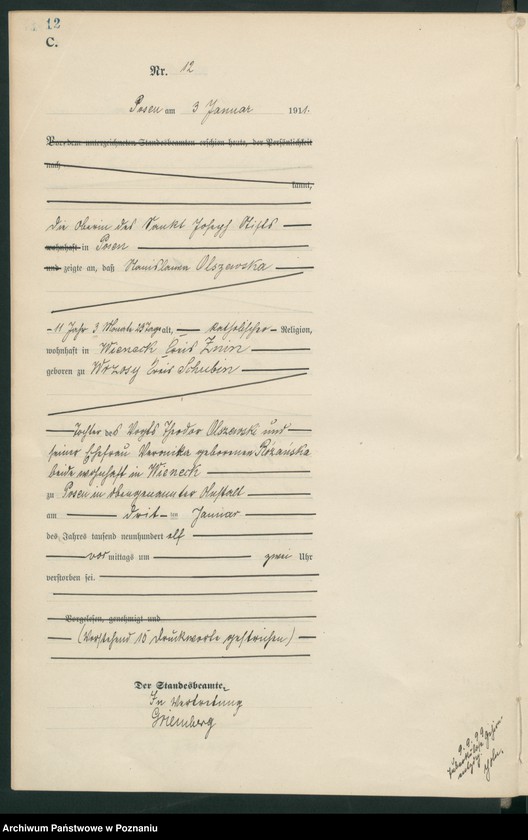 12
C.
Nr. 12
Posen am 3 Januar 1911.
Vor dem unterzeichneten Standesbeamten erschien heute, der Persönlichkeit
nach
kannt,
die Oberin des Sankt Joseph Stifts
wohnhaft in Posen
und zeigte an, daß Stanislawa Olszewska
11 Jahr 3 Monate 23 Tage alt, katholischer Religion,
wohnhaft in Wieneck Kreis Znin
geboren zu Wrzosy Kreis Schubin
Tochter des Vogts Theodor Olszewski und
seiner Ehefrau Veronika geborenen Rózańska
beide wohnhaft in Wieneck
zu Posen in obengenannter Anstalt
am drit ten Januar
des Jahres tausend neunhundert elf
vor mittags um zwei Uhr
verstorben sei.
Vorgelesen, genehmigt und
(Vorstehend 15 Druckworte gestrichen)
Der Standesbeamte.
In Vertretung
Griemberg
Archiwum Państwowe w Poznaniu